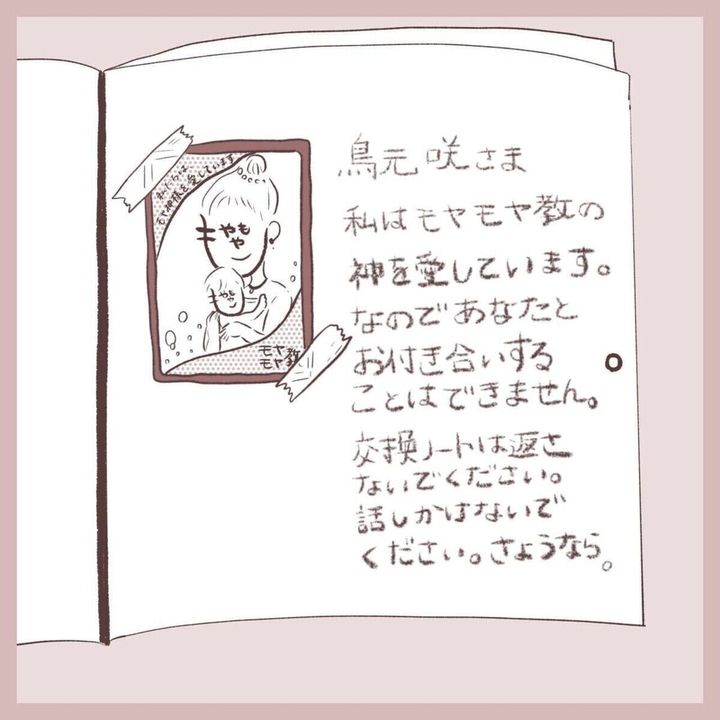 私たちは
モヤ神様を愛しています
モヤモヤ
モヤモヤ
モヤ
モヤ教
鳥元 咲さま
私はモヤモヤ教の
神を愛しています。
なのであなたと
お付き合いする
ことはできません。
交換ノートは返さ
ないでください。
話しかけないで
ください。さようなら。